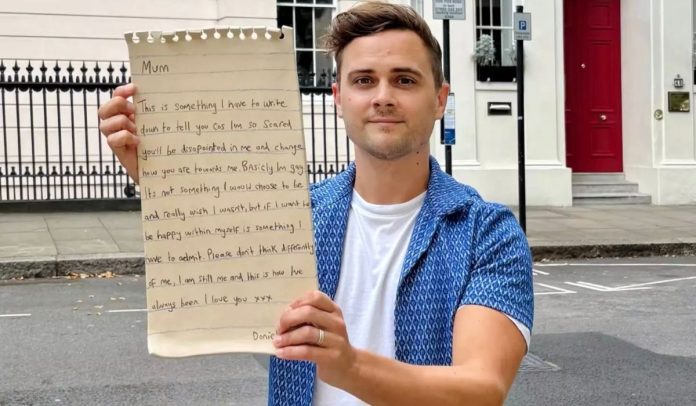 Mum
This is something I have to write
down to tell you cos Im so scared
you'll be disapointed in me and change
how you are towards me. Basicly Im gay
Its not something I would choose to be
and really wish I wasn't, but if I want to
be happy within myself is something I
have to admit. Please don't think differently
of me, I am still me and this is how I've
always been I love you xxx
Daniel
P